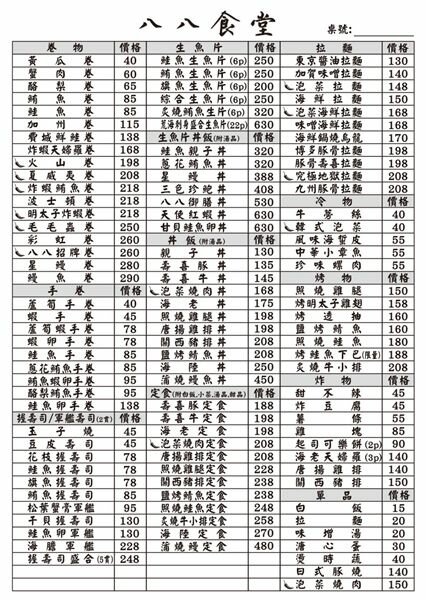 八八食堂
桌號:
卷物 價格
黃瓜卷 40
蟹肉卷 60
酪梨卷 65
鮪魚卷 85
鮭魚卷 85
加州卷 115
費城鮮鮭卷 138
炸蝦天婦羅卷 168
火山卷 198
夏威夷卷 208
炸蝦鮪魚卷 218
波士頓卷 218
明太子炸蝦卷 218
毛毛蟲卷 250
彩虹卷 260
八八招牌卷 260
星鰻卷 280
鰻魚卷 290
手卷 價格
蘆筍手卷 40
蝦手卷 45
蘆筍蝦手卷 78
蝦卵手卷 78
鮭魚手卷 85
蔥花鮪魚手卷 85
鮪魚蝦卵手卷 95
酪梨鮪魚手卷 95
鮭魚卵手卷 138
握壽司/軍艦壽司(2貫) 價格
玉子燒 45
豆皮壽司 45
花枝握壽司
鮭魚握壽司
旗魚握壽司
鮪魚握壽司
松葉蟹膏軍艦
干貝握壽司 130
鮭魚卵軍艦
海膽軍艦 228
握壽司盛合(5貫) 248
生魚片 價格
鮭魚生魚片(6p) 250
鮪魚生魚片(6p) 250
旗魚生魚片(6p) 200
綜合生魚片(6p) 250
炙燒鮪魚片(6p) 320
荒海刺身盛合生魚片(22p) 630
生魚片丼飯(附湯品) 價格
鮭魚親子丼 320
蔥花鮪魚丼 320
星鰻丼 388
三色珍鮑丼 408
八八御膳丼 530
天使紅蝦丼 630
甘貝鮭魚卵丼 630
丼飯(附湯品) 價格
親子丼 130
壽喜豚丼 135
壽喜牛丼 145
泡菜燒肉丼 168
海老丼 175
照燒雞腿丼 198
唐揚雞排丼 198
關西豬排丼 198
鹽烤鯖魚丼 198
海陸丼 250
蒲燒鰻魚丼 450
定食(附白飯,小菜,湯品,甜品) 價格
壽喜豚定食 188
海老定食
泡菜燒肉定食 208
唐揚雞排定食 228
照燒雞腿定食
關西豬排定食
鹽烤鯖魚定食 238
炙燒牛小排定食 258
海陸定食 270
蒲燒鰻定食 480
拉麵 價格
東京醬油拉麵 130
加賀味噌拉麵 140
泡菜拉麵 148
海鮮拉麵 150
泡菜海鮮拉麵 168
味噌海鮮拉麵 168
海鮮鍋燒烏龍 170
博多豚骨拉麵 198
豚骨壽喜拉麵 198
究極地獄拉麵 208
九州豚骨拉麵 208
冷物 價格
牛蒡絲 40
韓式泡菜 40
風味海蜇皮 55
中華小章魚 55
珍味螺肉 55
烤物 價格
照燒雞腿 150
烤明太子雞翅 158
烤透抽 160
鹽烤鯖魚 160
照燒鮭魚 180
烤鮭魚下巴(限量) 188
炙燒牛小排 200
炸物 價格
甜不辣 45
炸豆腐 45
薯條 55
雞塊 85
起司可樂餅(2p) 90
海老天婦羅(3p) 140
唐揚雞排 140
關西豬排 150
單品 價格
白飯 15
拉麵 20
味噌湯 20
溏心蛋 30
燙時蔬 40
日式豚燒 140
泡菜燒肉 150